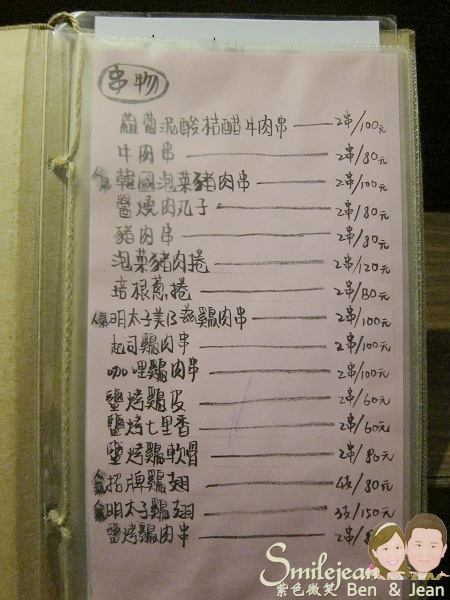 串物
蘿蔔泥酸桔醋牛肉串 2串/100元
牛肉串 2串/80元
人氣 韓國泡菜豬肉串 2串/100元
醬燒肉丸子 2串/80元
豬肉串 2串/80元
泡菜豬肉捲 2串/120元
培根蔥捲 2串/130元
人氣 明太子美乃滋雞肉串 2串/100元
起司雞肉串 2串/100元
咖哩雞肉串 2串/100元
鹽烤雞皮 2串/60元
鹽烤七里香 2串/60元
鹽烤雞軟骨 2串/80元
人氣 招牌雞翅 4支/80元
人氣 明太子雞翅 3支/150元
鹽烤雞肉串 2串/
Smilejean
紫色微笑 Ben & Jean